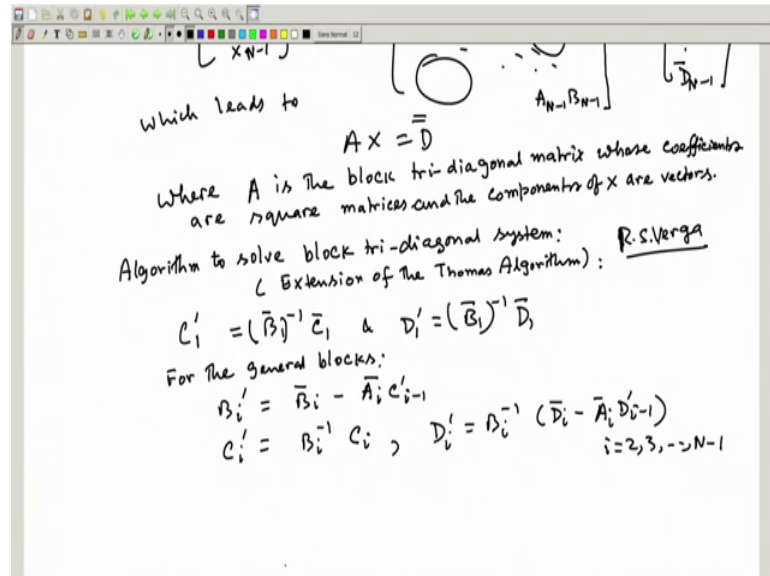 X N-1
D̄N-1
A N-1 B N-1
which leads to
A X = D̿
Where A is the block tri-diagonal matrix whose coefficients
are square matrices and the components of X are vectors.
Algorithm to solve block tri-diagonal system: R.S.Verga
( Extension of the Thomas Algorithm) :
C₁' = (B̄₁)⁻¹ C̄₁ & D₁' = (B̄₁)⁻¹ D̄₁
For the general blocks:
Bᵢ' = B̄ᵢ - Āᵢ C'ᵢ₋₁
Cᵢ' = Bᵢ⁻¹ Cᵢ , Dᵢ' = Bᵢ⁻¹ (D̄ᵢ - Āᵢ D'ᵢ₋₁)
i=2,3,--,N-1